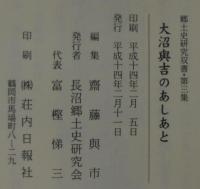 郷土史研究双書・第三集
大沼與吉のあしあと
印刷 平成十四年二月 五日
発行 平成十四年二月十一日
編集 齋藤與市
発行者 長沼郷土史研究会
代表 富樫悌三
印刷 ㈱荘内日報社
鶴岡市馬場町八―二九